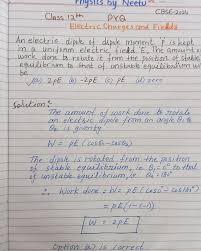 Physics by Neetu
CBSE-2024
Class 12th PYQ
Electric Charges and Fields
An electric dipole of dipole moment P is kept
in a uniform electric field E. The amount of
work done to rotate it from the position of stable
equilibrium to that of unstable equilibrium will
be
(a) 2PE (b) -2PE (c) PE (d) zero
Solution:-
The amount of work done to rotate
an electric dipole from an angle θ1 to
θ2 is given by
W = PE (cosθ1 - cosθ2)
The dipole is rotated from the position
of stable equilibrium, i.e. θ1 = 0° to that
of unstable equilibrium, i.e. θ2 = 180°
∴ Work done = W = PE (cos0° - cos180°)
= PE(1-(-1))
W = 2PE
Option (a) is correct